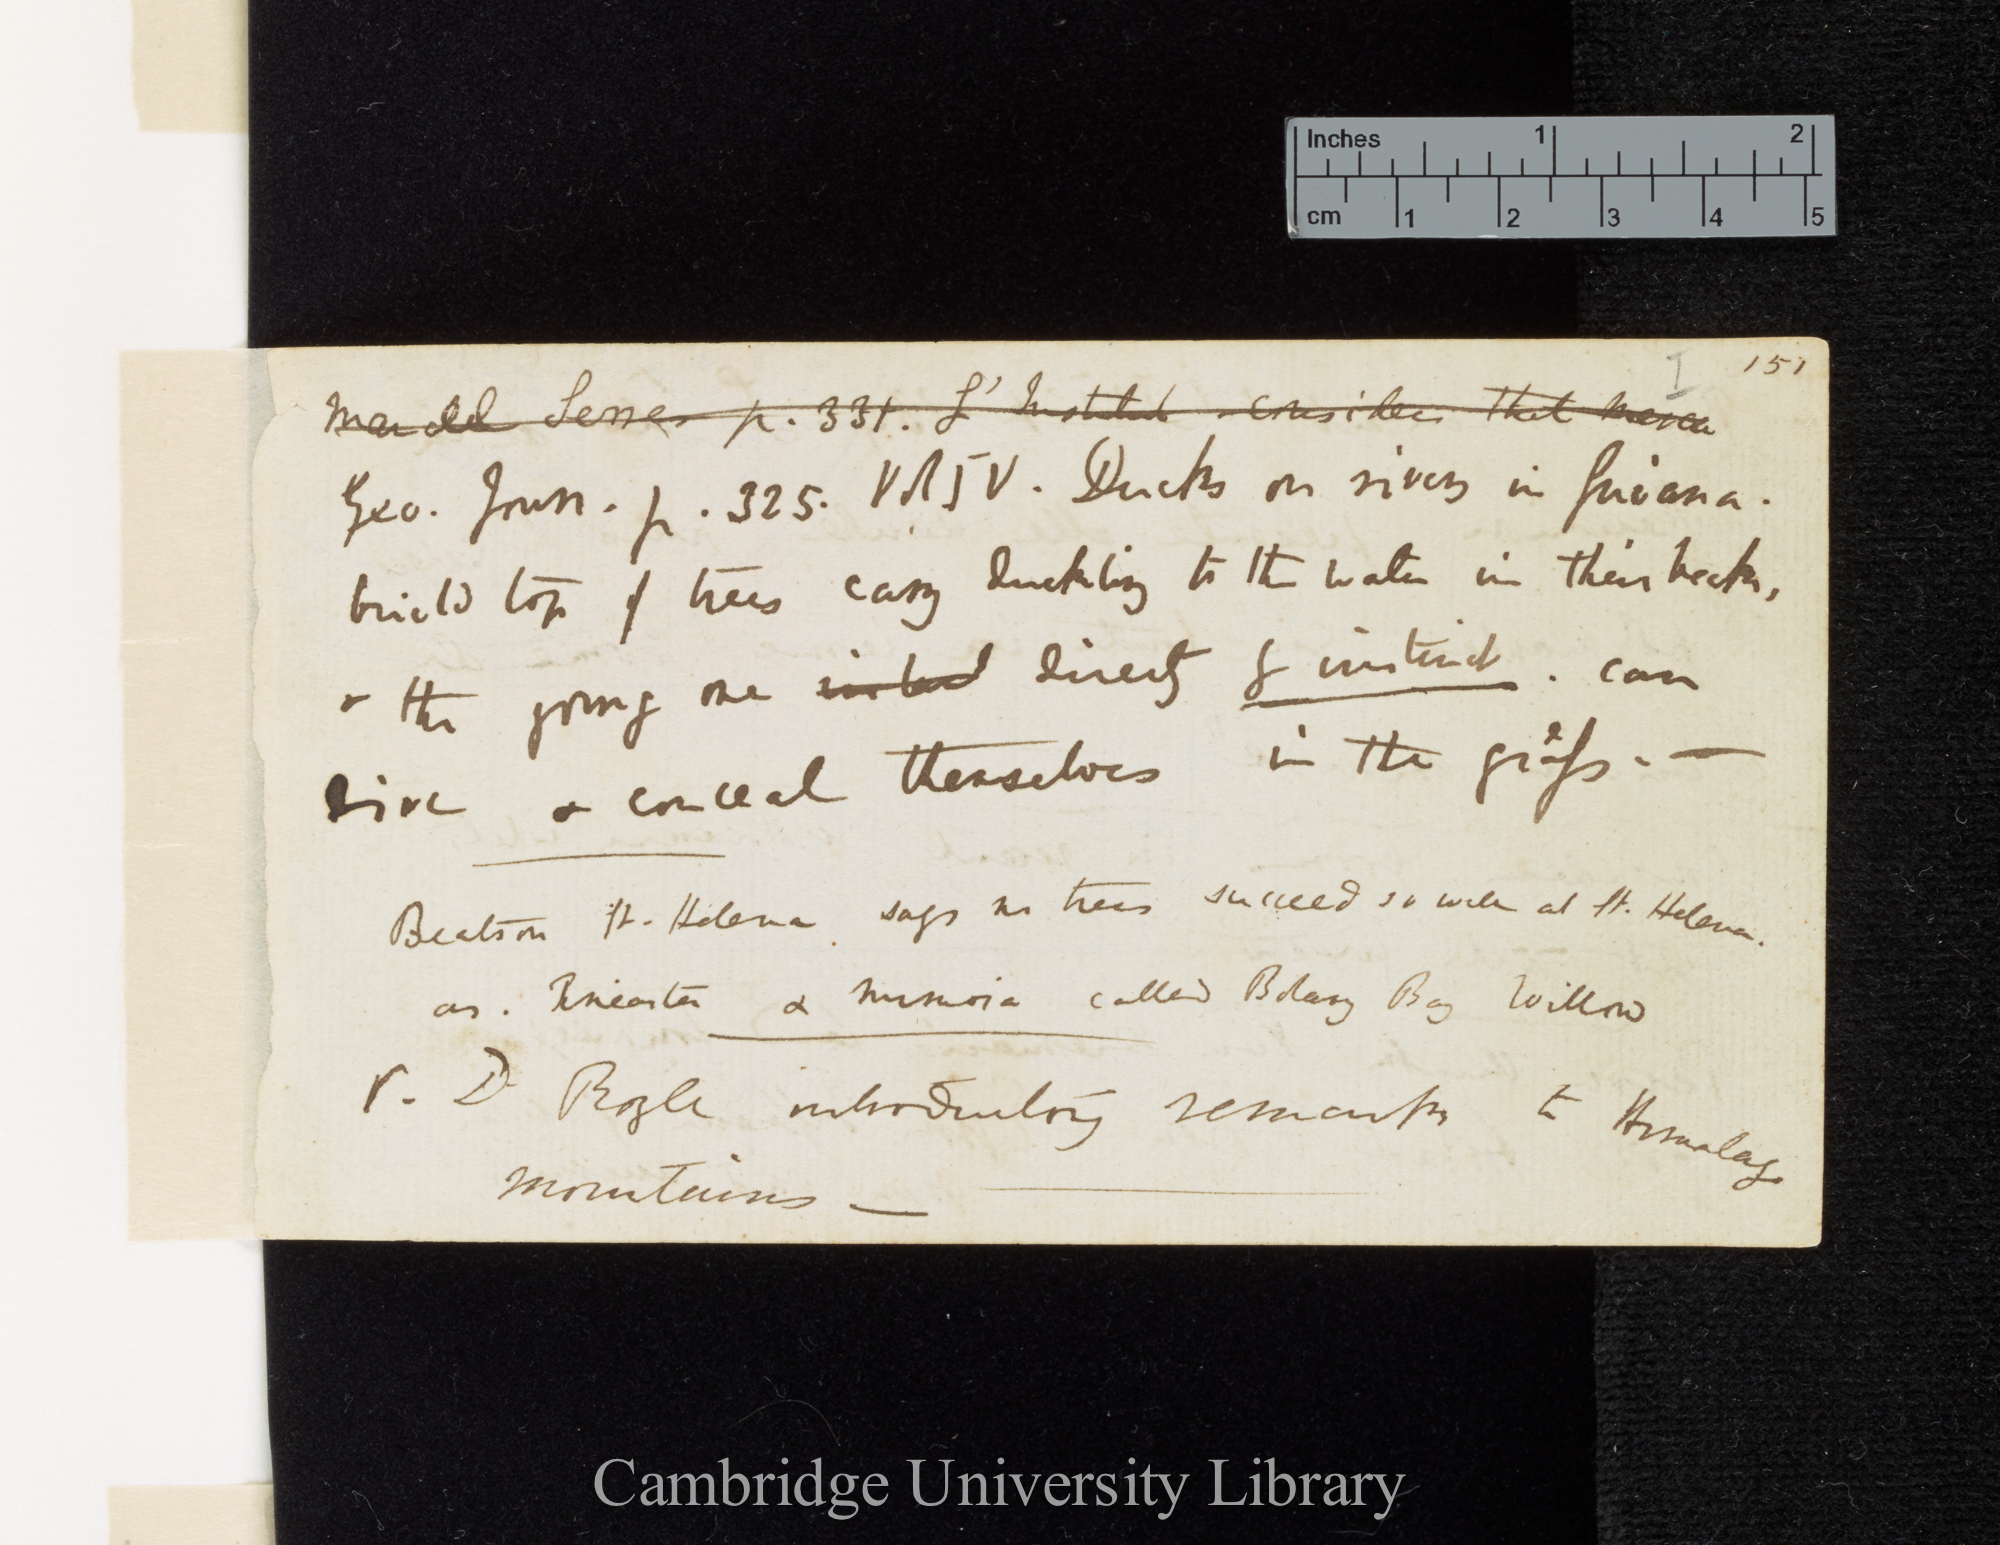 Inches 1 2
cm 1 2 3 4 5
I 151
Marcel Serres p. 331. L' Institut considers that
Geo. Journ. p. 325. Vol IV. Ducks on rivers in Guiana.
build top of trees carry duckling to the water in their beaks,
& the young one instead directly by instinct. can
dive & conceal themselves in the grass. —
Beatson St. Helena says no trees succeed so well at St. Helena.
as. Pineaster & mimosa called Botany Bay Willow
V. D Royle introductory remarks to Himalaya
mountains —
Cambridge University Library